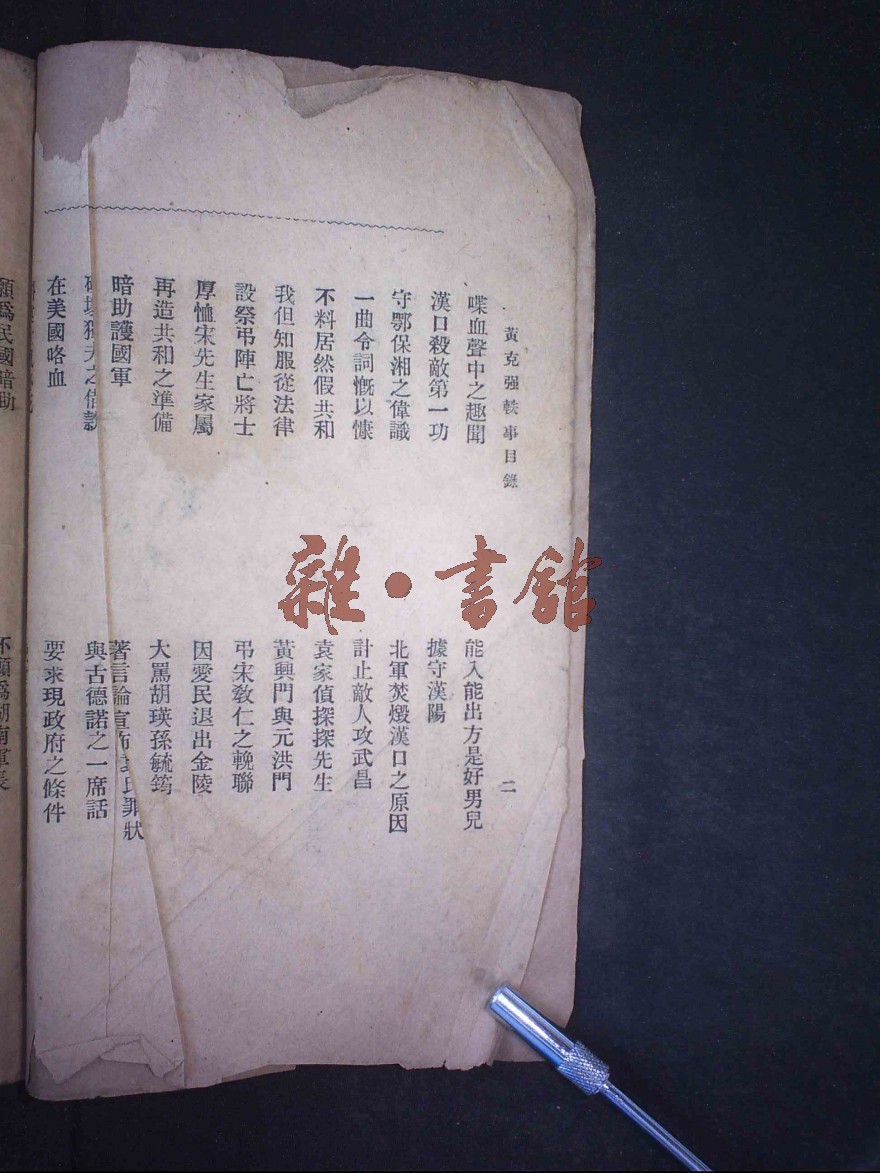 黃克强軼事目錄
二
喋血聲中之趣聞
能入能出方是好男兒
漢口殺敵第一功
據守漢陽
守鄂保湘之偉識
北軍焚燬漢口之原因
一曲令詞慨以慷
計止敵人攻武昌
不料居然假共和
袁家偵探探先生
我但知服從法律
黃興門與元洪門
設祭弔陣亡將士
弔宋敎仁之輓聯
厚恤宋先生家屬
因愛民退出金陵
再造共和之準備
大罵胡瑛孫毓筠
暗助護國軍
著言論宣布袁氏罪狀
破壞獨夫之借款
與古德諾之一席話
在美國咯血
要求現政府之條件
願爲民國暗助
不願爲湖南軍長
雜·書館